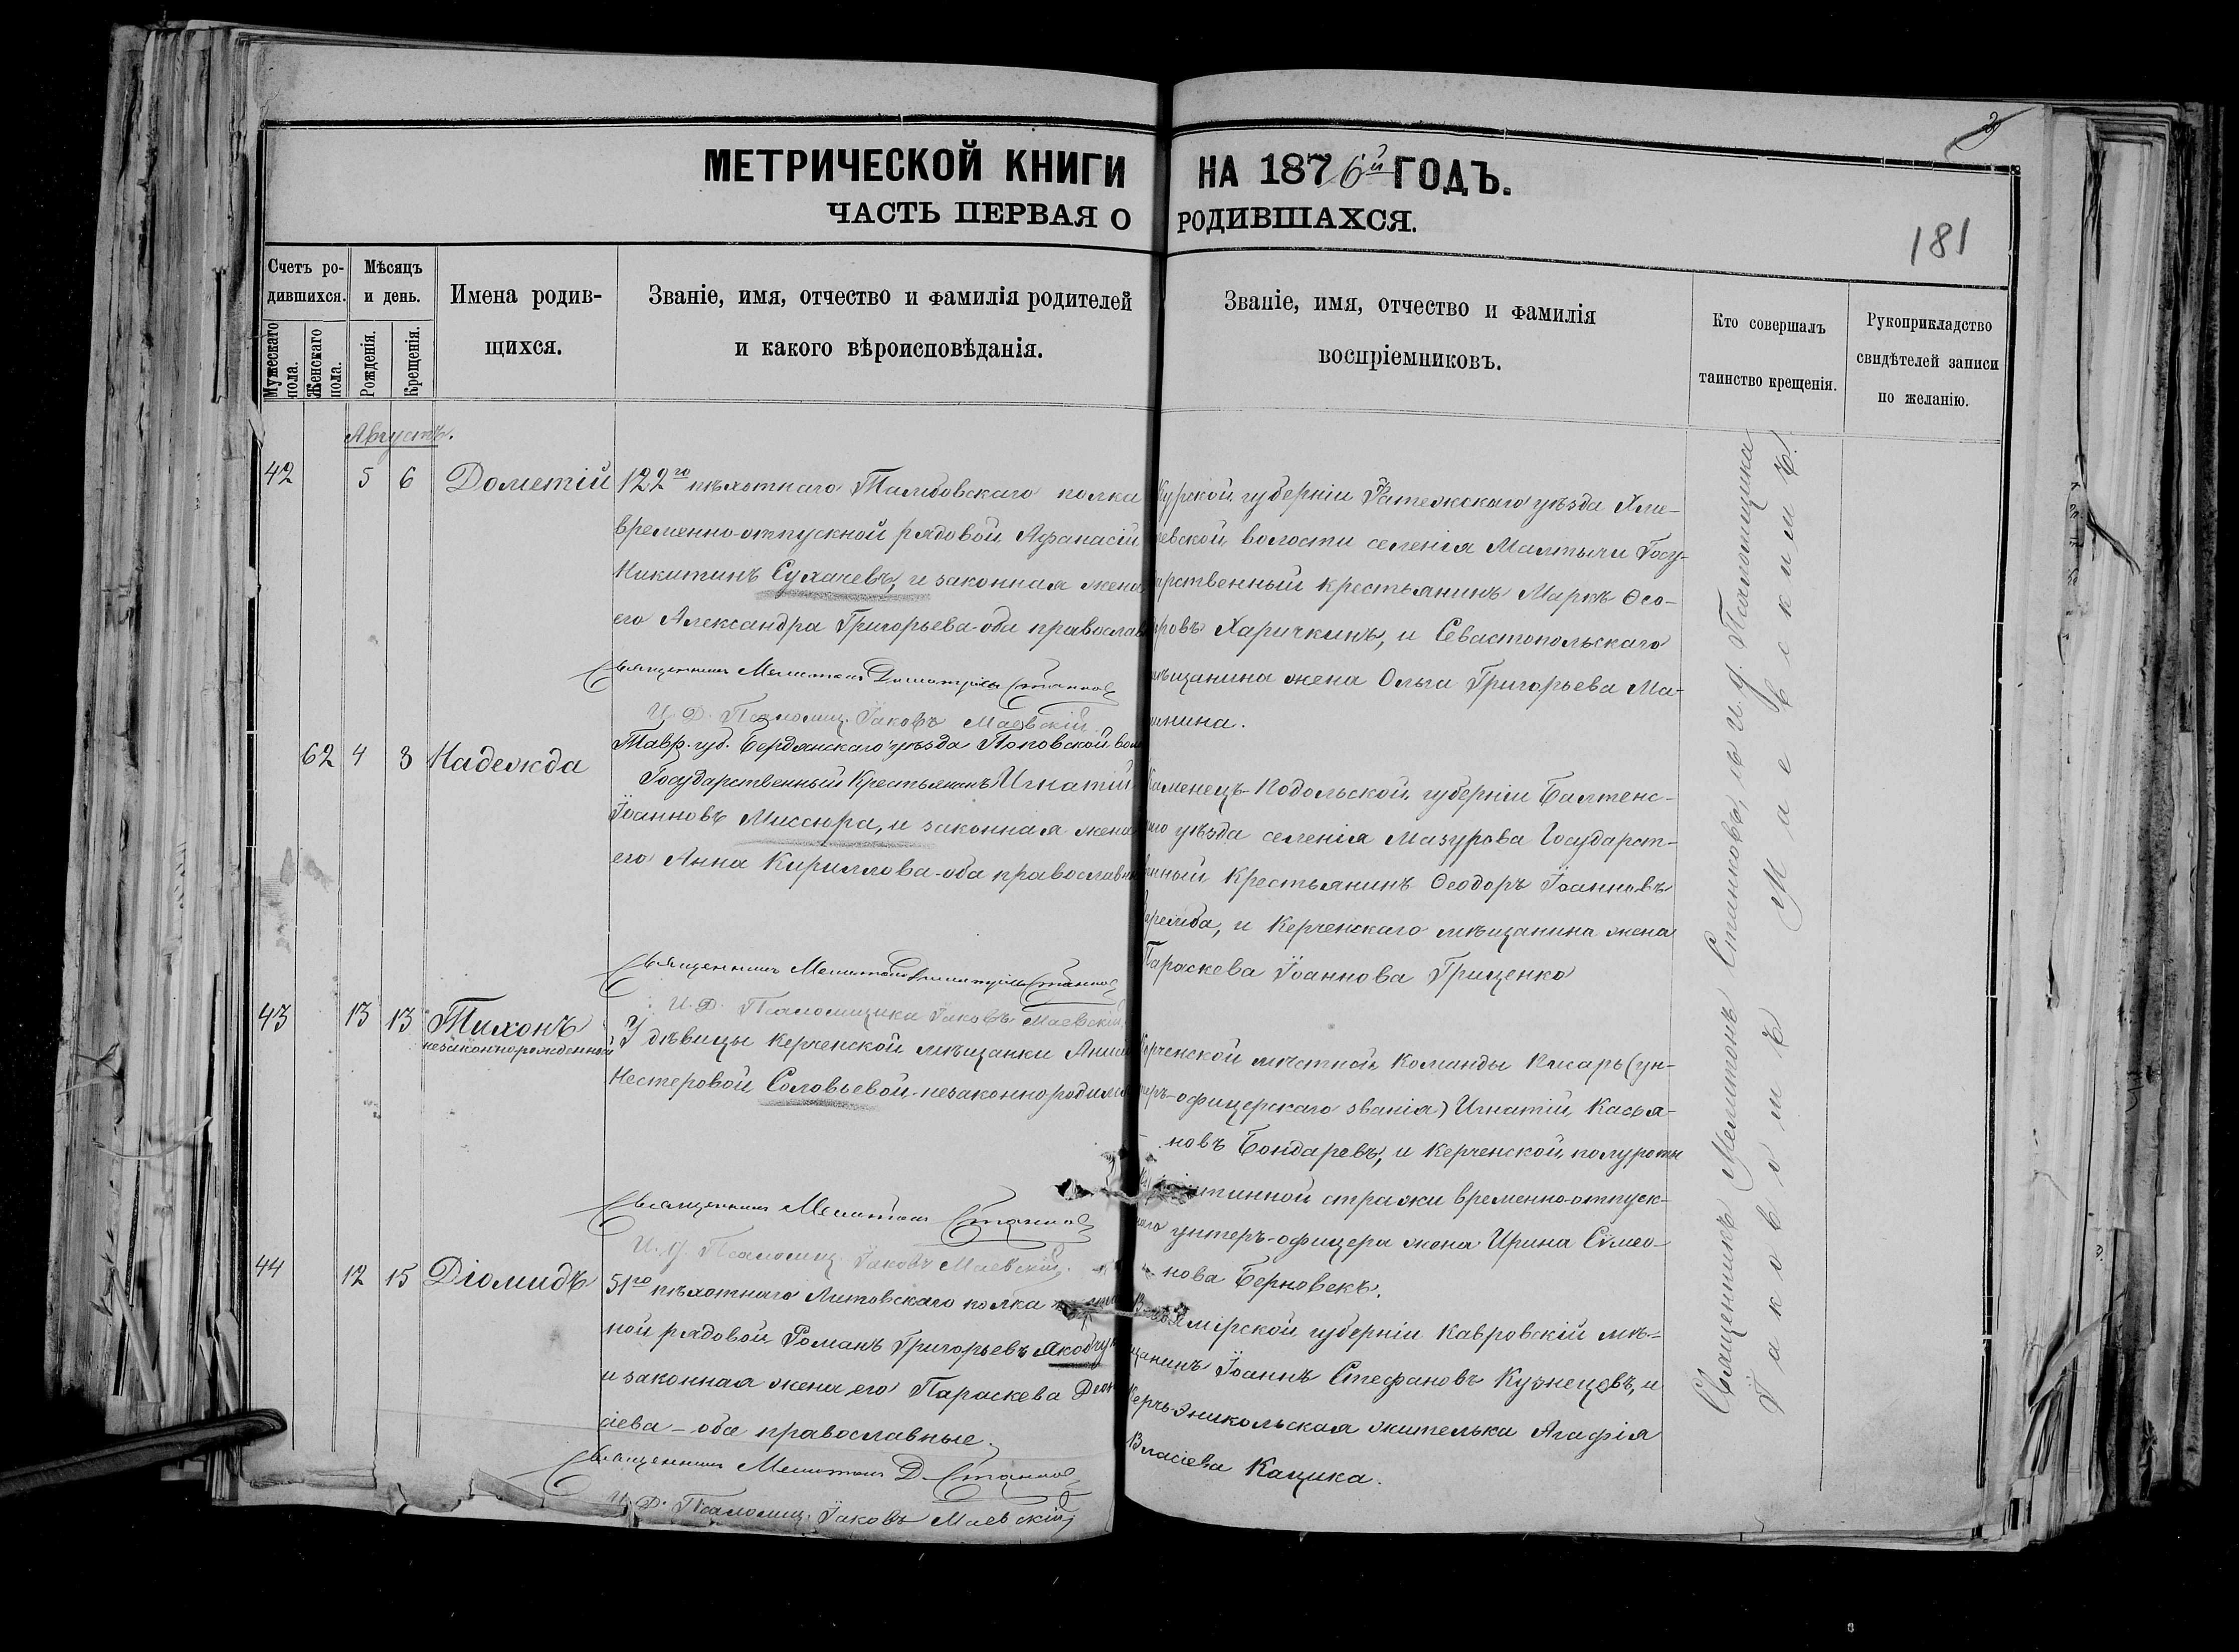 МЕТРИЧЕСКОЙ КНИГИ НА 1876й ГОДЪ.
ЧАСТЬ ПЕРВАЯ О РОДИВШАХСЯ.
181
Счетъ ро-
дившихся.
Мужескаго пола.
Женскаго пола.
Мѣсяцъ
и день.
Рожденія.
Крещенія.
Имена родив-
шихся.
Званіе, имя, отчество и фамилія родителей
и какого вѣроисповѣданія.
Званіе, имя, отчество и фамилія
воспріемниковъ.
Кто совершалъ
таинство крещенія.
Рукоприкладство
свидѣтелей записи
по желанію.
Августъ.
42
5
6
Дометій
122го пѣхотнаго Тамбовскаго полка
временно-отпускной рядовой Афанасій
Никитинъ Сухачевъ, и законная жена
его Александра Григорьева-оба православ
Священникъ Мелитонъ Димитріевъ Станковъ
И. Д. Псаломщ. Іаковъ Маевскій
Курской губерніи Фатежскаго уѣзда Хме-
левской волости селенія Малтычи Госу-
дарственный крестьянинъ Маркъ Ѳео-
доровъ Харичкинъ, и Севастопольскаго
мѣщанина жена Ольга Григорьева Ма-
нина.
62
4
3
Надежда
Тавр. губ. Бердянскаго уѣзда Поповской вол
Государственный Крестьянинъ Игнатій
Іоанновъ Миссюра, и законная жена
его Анна Кириллова-оба православн
Священникъ Мелитонъ Димитріевъ Станковъ
И. Д. Псаломщика Іаковъ Маевскій
Каменецъ-Подольской губерніи Балтенс-
каго уѣзда селенія Мазурова Государст-
венный Крестьянинъ Ѳеодоръ Іоанновъ
и Керченскаго мѣщанина жена
Параскева Іоаннова Гриценко
43
13
13
Тихонъ
незаконнорожденный
У дѣвицы Керченской мѣщанки
Нестеровой Соловьевой-незаконнородился
Священникъ Мелитонъ Станковъ
И. Д. Псаломщ. Іаковъ Маевскій.
Керченской мѣстной Команды Писарь (ун-
теръ-офицерскаго званія) Игнатій Касья-
новъ Бондаревъ, и Керченской полуроты
стражи временно-отпуск-
наго унтеръ-офицера жена Ирина Сѵмео-
нова Берновекъ.
44
12
15
Діомидъ
51го пѣхотнаго Литовскаго полка
ной рядовой Романъ Григорьевъ Якобчук
и законная жена его Параскева Діони
сіева-оба православные.
Священникъ Мелитонъ Д. Станковъ
И. Д. Псаломщ. Іаковъ Маевскій
Владимірской губерніи Кавровскій мѣ-
щанинъ Іоаннъ Стефановъ Кузнецовъ, и
Керчь-Эникольская жителька Агафія
Власіева Кацика.
Священникъ Мелитонъ Станковъ, съ И. Д. Псаломщика
Іаковомъ Маевскимъ.